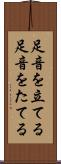 足音を立てる
足音をたてる